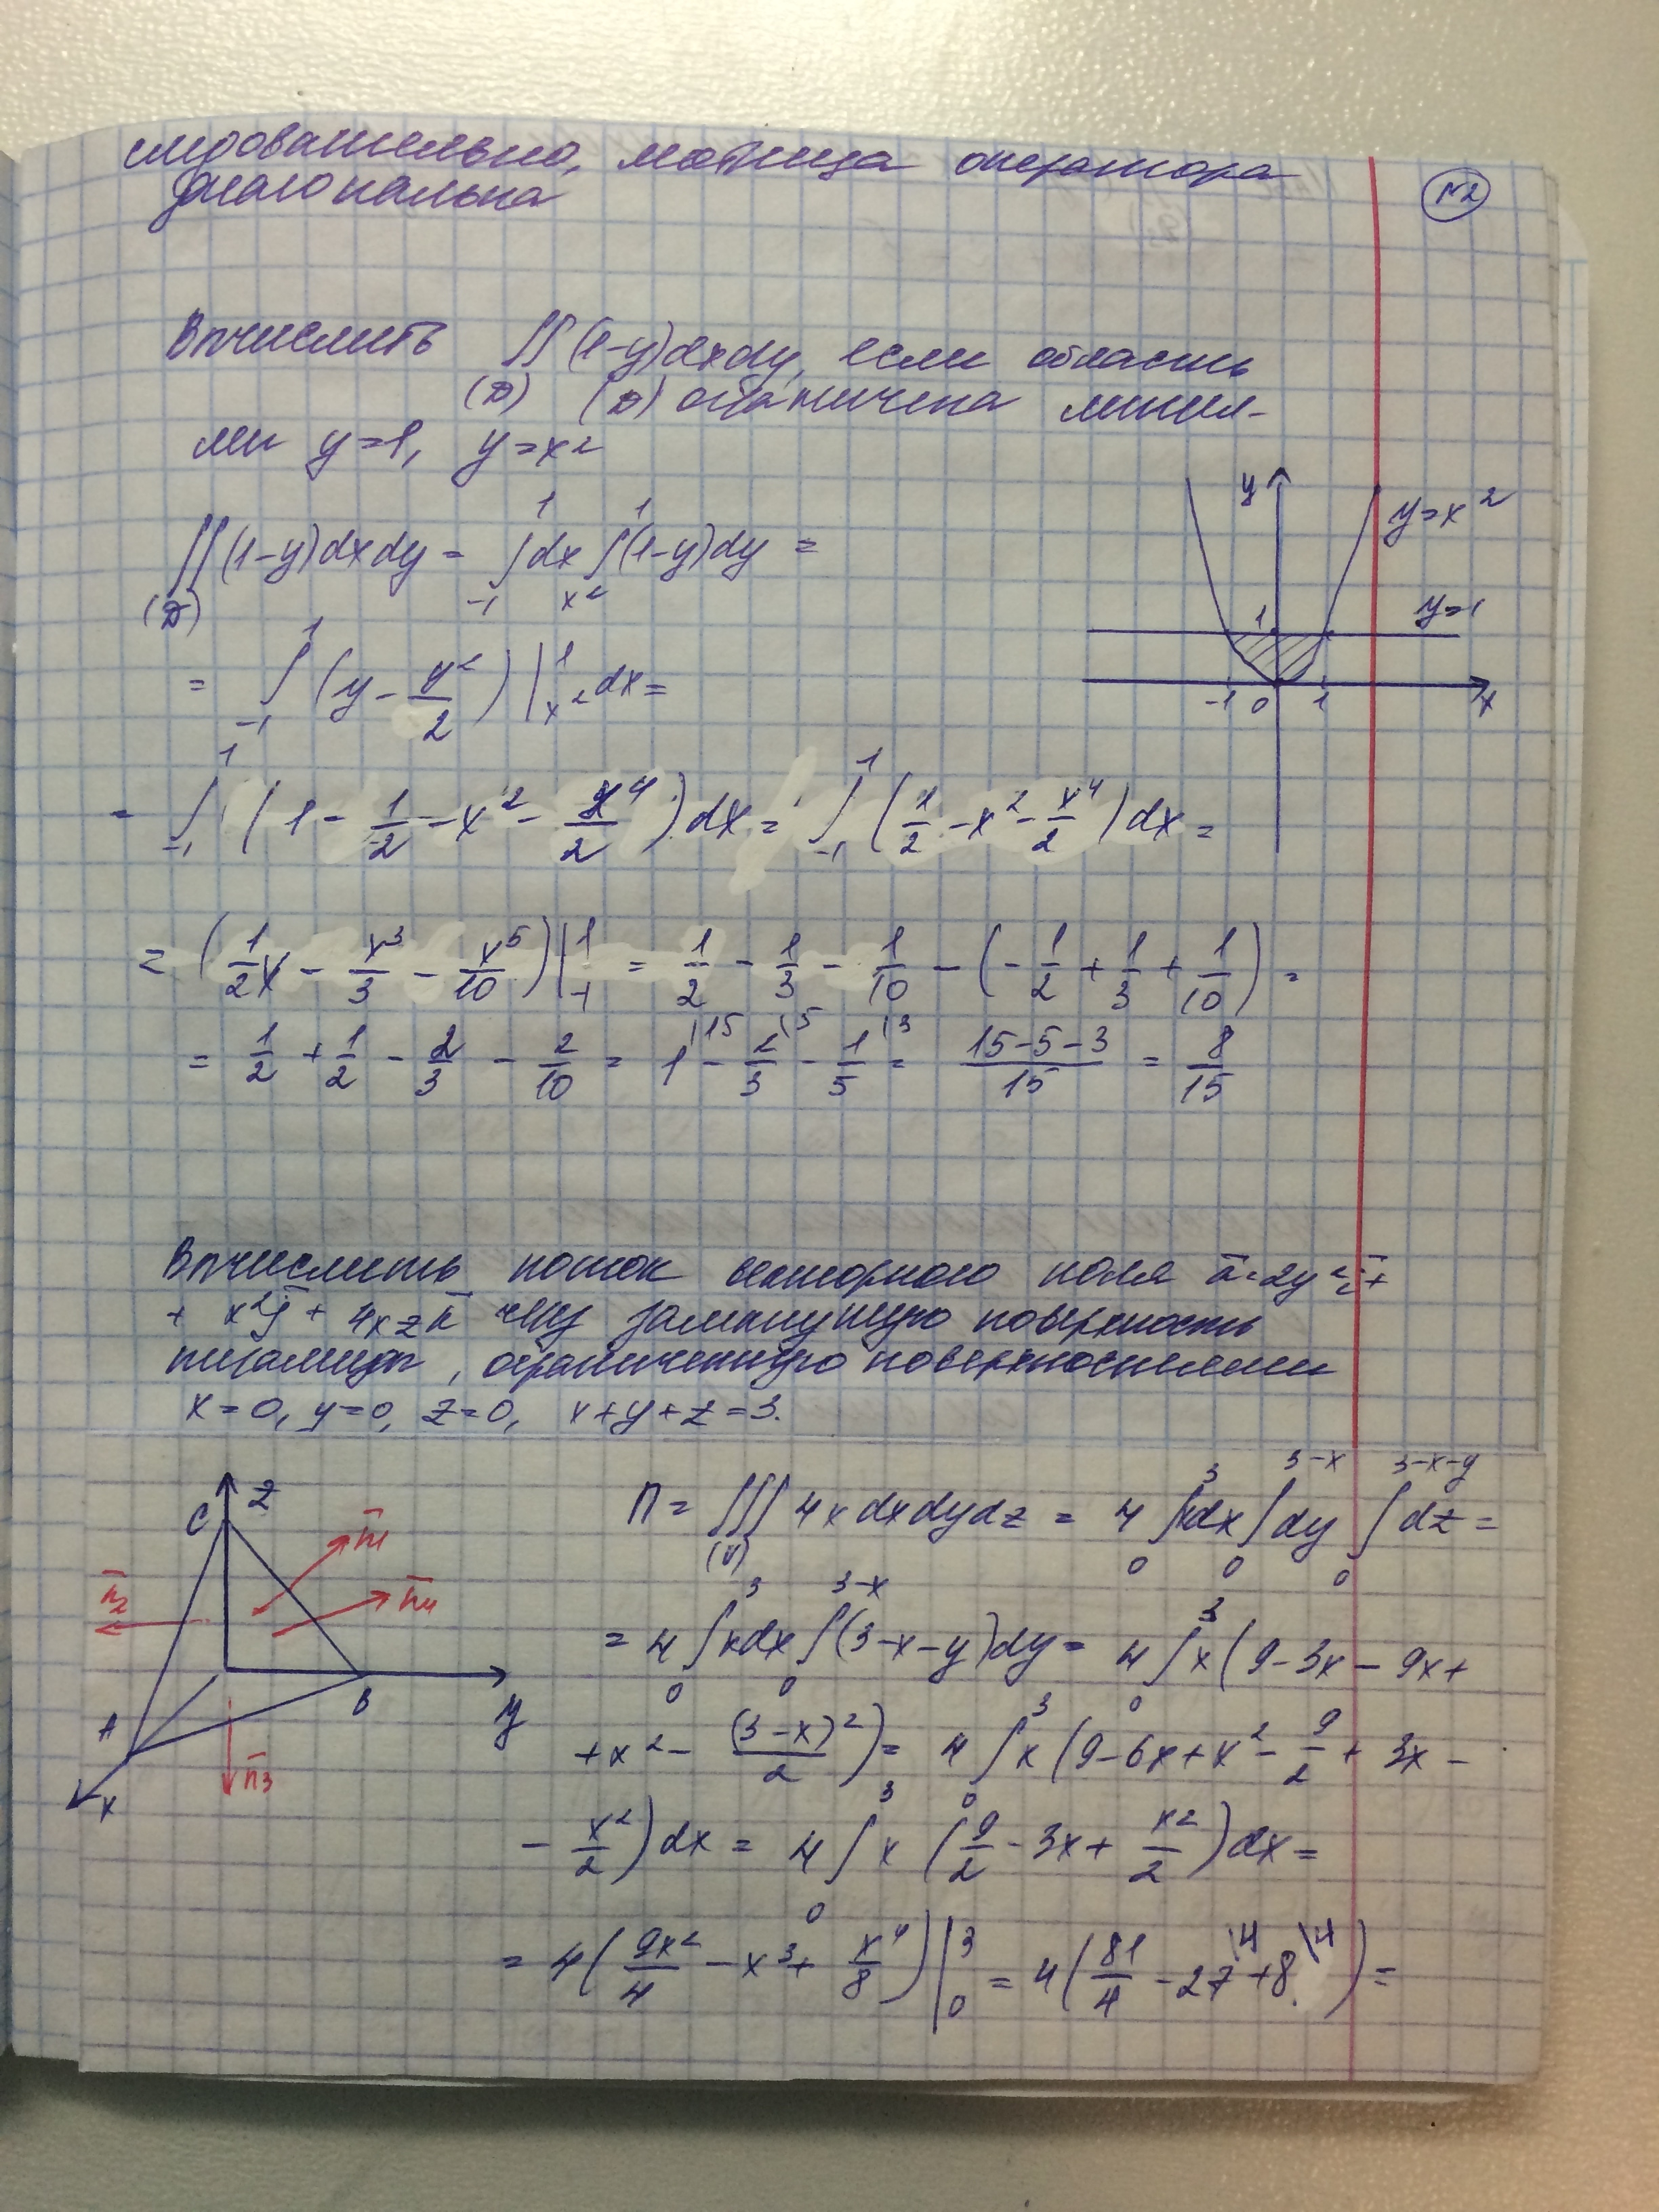 следовательно, матрица оператора
диагональна
№2
Вычислить ∬(1-y)dxdy, если область
(D) (D) ограничена линия-
ми y=1, y=x²
∬(1-y)dxdy = ∫₋₁¹dx ∫_{x²}^{1}(1-y)dy =
(D)
= ∫₋₁¹ (y - y²/2)|_{x²}^{1} dx =
= ∫₋₁¹ (1 - 1/2 - x² - x⁴/2) dx = ∫₋₁¹ (1/2 - x² - x⁴/2) dx =
= (1/2 x - x³/3 - x⁵/10)|₋₁¹ = 1/2 - 1/3 - 1/10 - (-1/2 + 1/3 + 1/10) =
= 1/2 + 1/2 - 2/3 - 2/10 = 1\15 - 2/3\5 - 1/5\3 = (15-5-3)/15 = 8/15
y
y=x²
y=1
1
-1 0 1 x
Вычислить поток векторного поля ā=2y²ī+
+ x²j̄ + 4xzk̄ через замкнутую поверхность
пирамиды, ограниченную поверхностями
x=0, y=0, z=0, x+y+z=3.
C z
n̄₁
n̄₂ n̄₄
A B y
n̄₃
x
П = ∭ 4x dxdydz = 4 ∫₀³ xdx ∫₀^{3-x} dy ∫₀^{3-x-y} dz =
(V)
= 4 ∫₀³ xdx ∫₀^{3-x} (3-x-y)dy = 4 ∫₀³ x(9-3x-9x+
+x² - (3-x)²/2) = 4 ∫₀³ x(9-6x+x² - 9/2 + 3x -
- x²/2) dx = 4 ∫₀³ x (9/2 - 3x + x²/2) dx =
= 4(9x²/4 - x³ + x⁴/8)|₀³ = 4(81/4 - 27\4 + 8\4) =